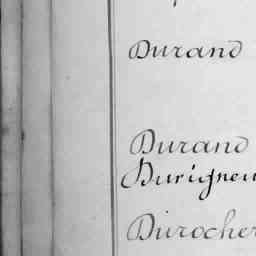 Durand
Durand
Durigneu
Durocher